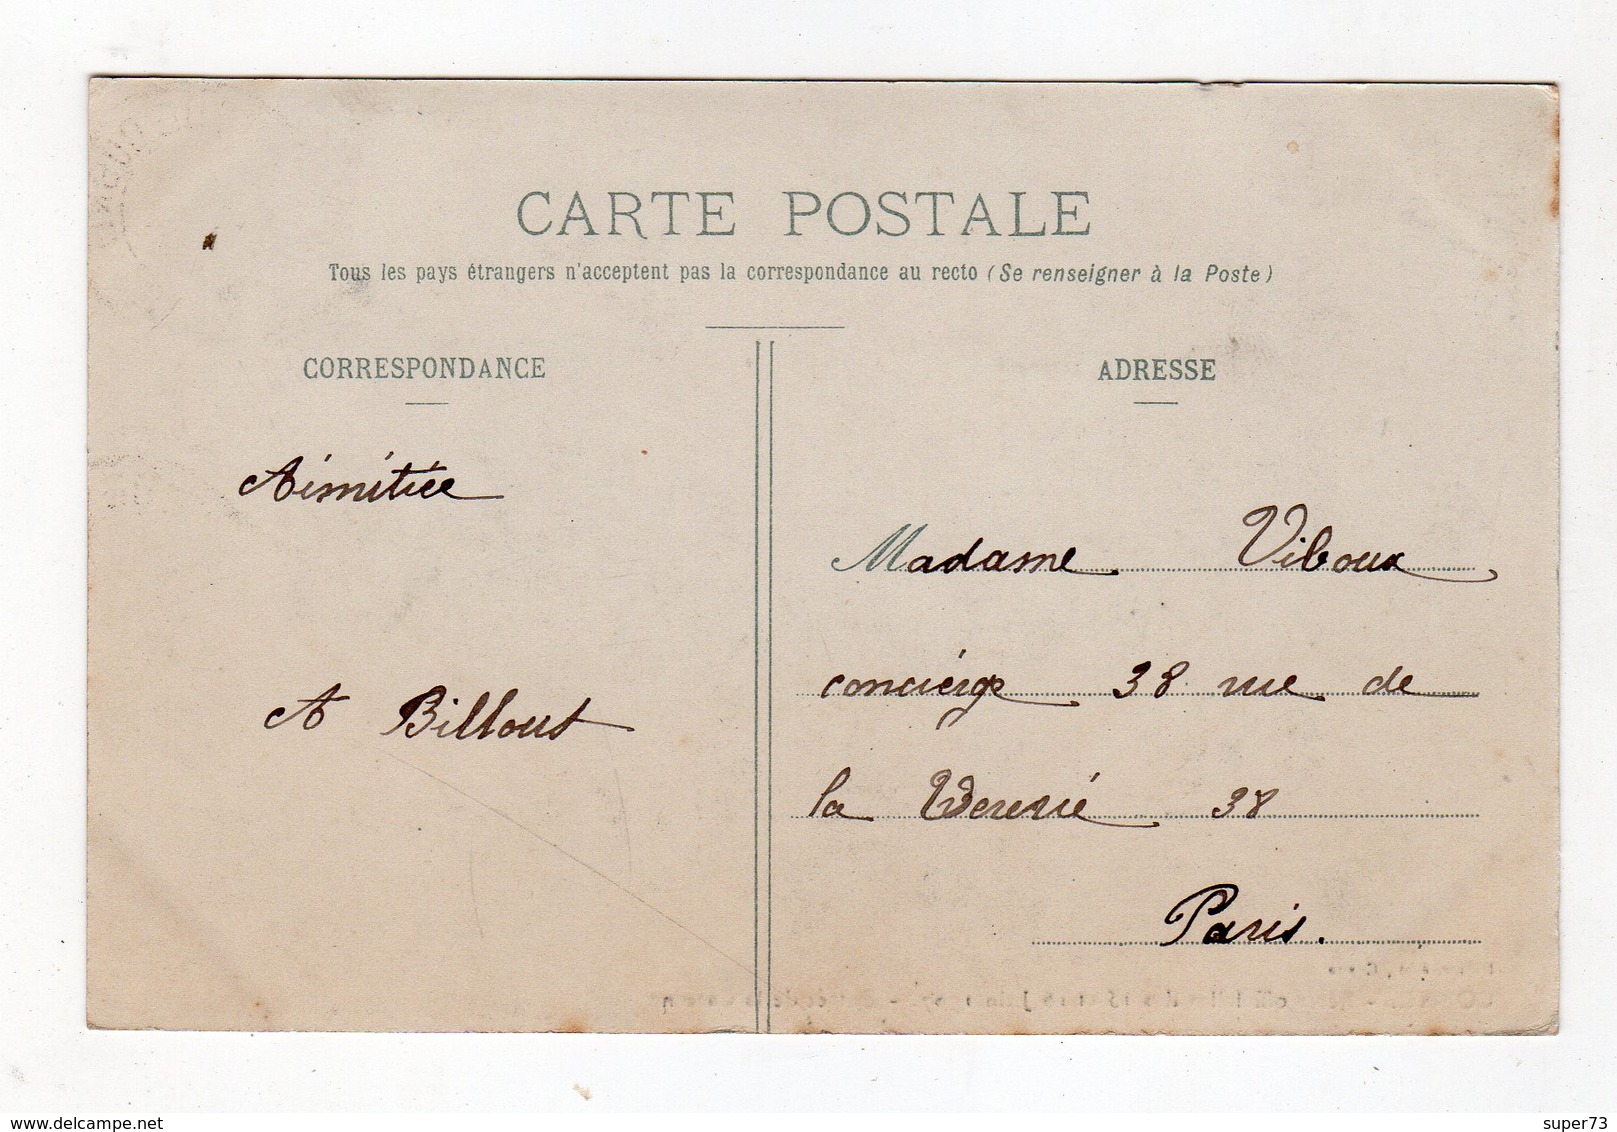 CARTE POSTALE
Tous les pays étrangers n'acceptent pas la correspondance au recto (Se renseigner à la Poste)
CORRESPONDANCE
Aimitiée
A Billout
ADRESSE
Madame Viboux
conciérge 38 rue de
la 38
Paris.
delcampe.net
super73